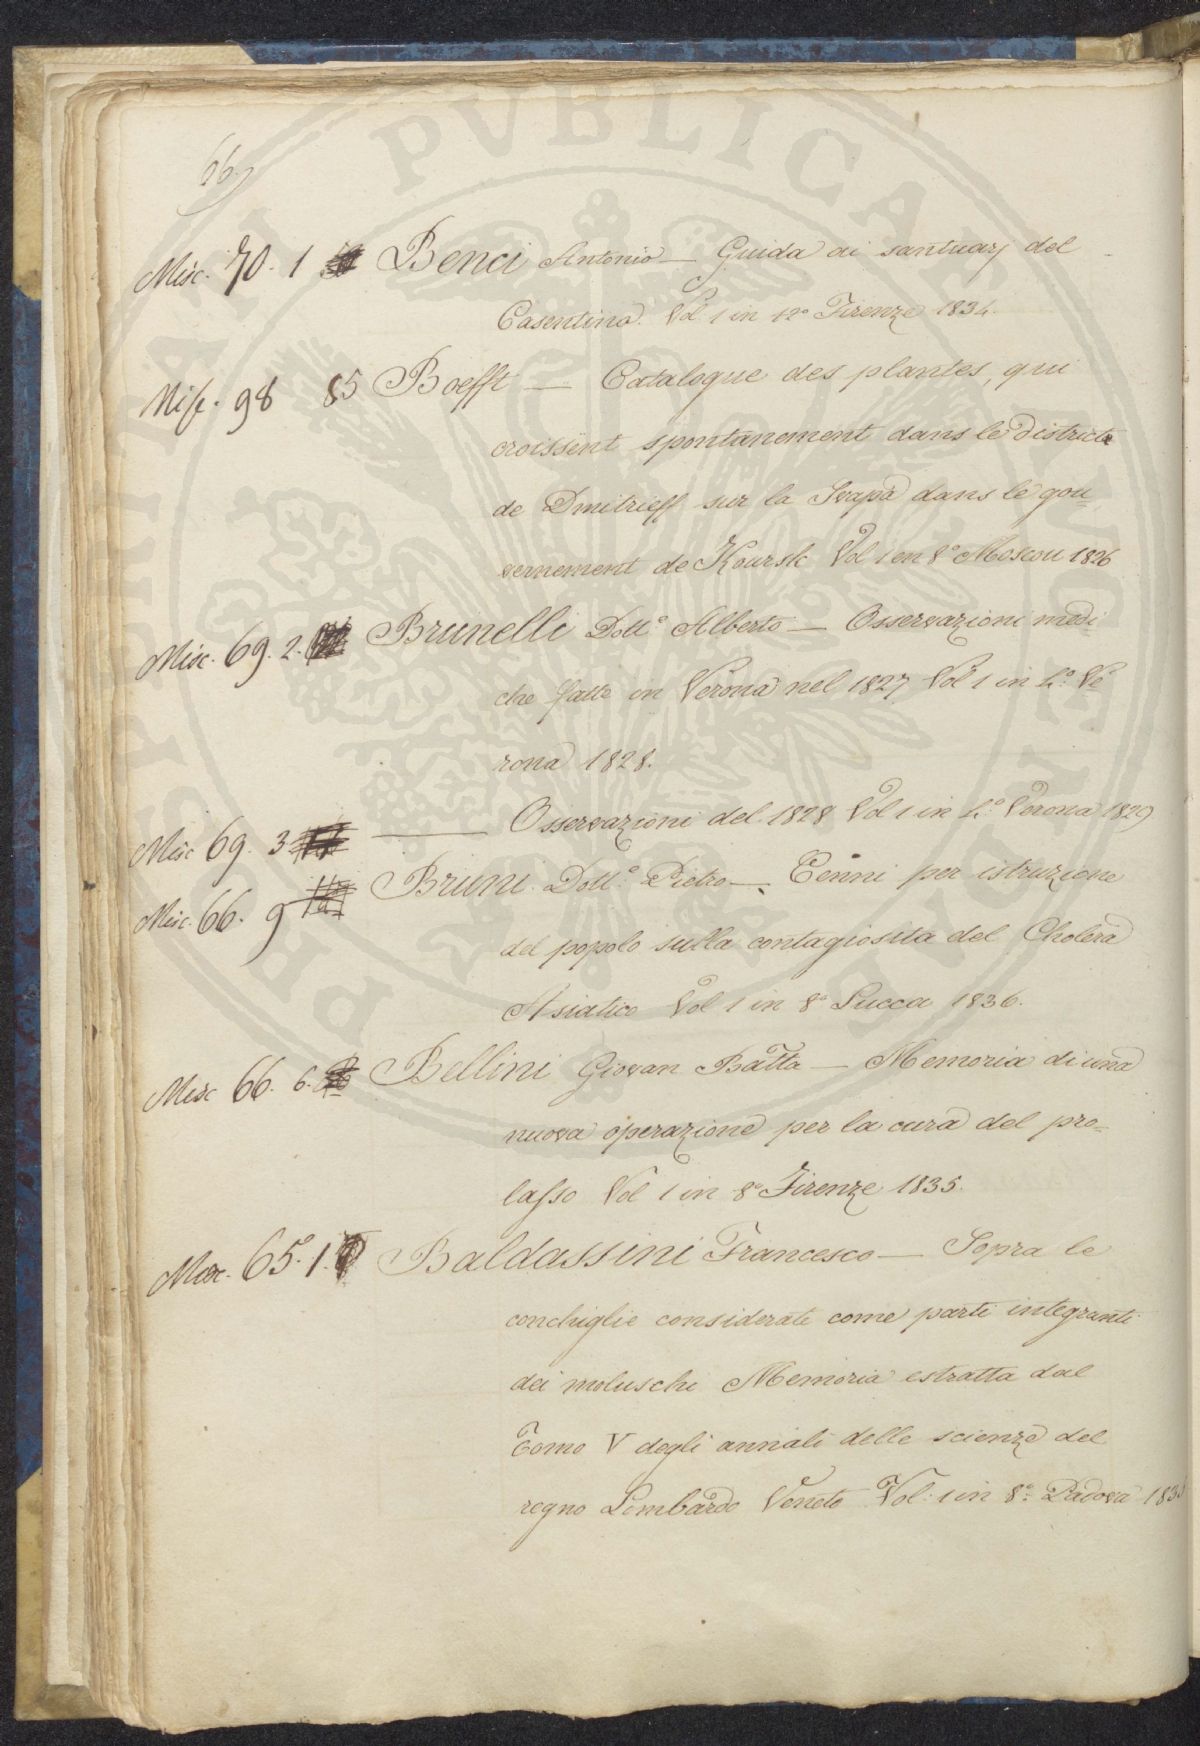 66
Misc. 70. 1 Benci Antonio — Guida ai santuarj del
Casentino. Vol 1 in 12° Firenze 1834.
Misc. 98 85 Boefft — Catalogue des plantes, qui
croissent spontanement dans le districte
de Dmitrieff sur la Svapa dans le gou-
vernement de Koursk Vol 1 en 8° Moscou 1826
Misc. 69. 2. Brunelli Dott.° Alberto — Osservazioni medi-
che fatte in Verona nel 1827 Vol 1 in 4.° Ve-
rona 1828.
Misc 69. 3 — Osservazioni del 1828 Vol 1 in 4.° Verona 1829
Misc. 66. 9 Bruni Dott.° Pietro — Cenni per istruzione
del popolo sulla contagiosita del Cholera
Asiatico Vol 1 in 8° Lucca 1836.
Misc 66. 6. Bellini Giovan Batta — Memoria di una
nuova operazione per la cura del pro-
lasso Vol 1 in 8° Firenze 1835.
Misc. 65. 1. Baldassini Francesco — Sopra le
conchiglie considerate come parti integranti
dei moluschi Memoria estratta dal
Tomo V degli annali delle scienze del
regno Lombardo Veneto Vol. 1 in 8.° Padova
BIBLIOTHECA PVBLICAE